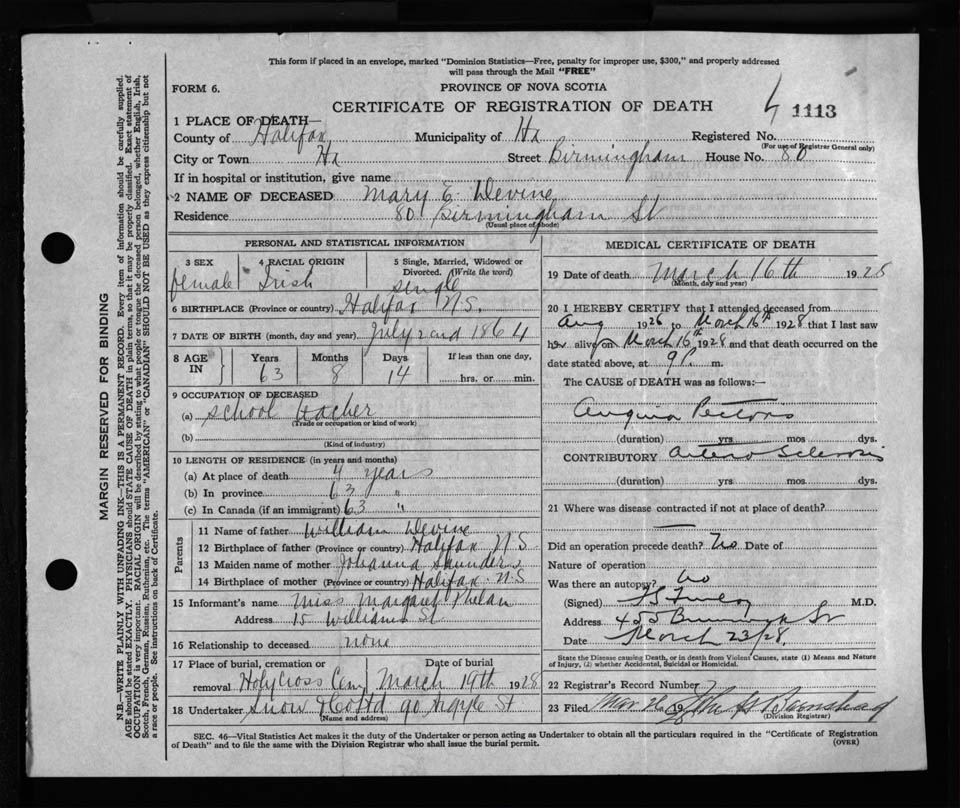 This form if placed in an envelope, marked "Dominion Statistics—Free, penalty for improper use, $300," and properly addressed
will pass through the Mail "FREE"
FORM 6.
PROVINCE OF NOVA SCOTIA
CERTIFICATE OF REGISTRATION OF DEATH
1113
1 PLACE OF DEATH—
County of Halifax Municipality of Hx Registered No.
(For use of Registrar General only)
City or Town Hx Street Birmingham House No. 80
If in hospital or institution, give name
2 NAME OF DECEASED Mary E. Devine
Residence 80 Birmingham St
(Usual place of abode)
PERSONAL AND STATISTICAL INFORMATION
3 SEX 4 RACIAL ORIGIN 5 Single, Married, Widowed or
Divorced. (Write the word)
female Irish single
6 BIRTHPLACE (Province or country) Halifax N.S.
7 DATE OF BIRTH (month, day and year) July 2nd 1864
8 AGE IN Years Months Days If less than one day,
63 8 14 hrs. or min.
9 OCCUPATION OF DECEASED
(a) school teacher
(Trade or occupation or kind of work)
(b)
(Kind of industry)
10 LENGTH OF RESIDENCE (in years and months)
(a) At place of death 4 years
(b) In province 63 "
(c) In Canada (if an immigrant) 63 "
Parents
11 Name of father William Devine
12 Birthplace of father (Province or country) Halifax N S
13 Maiden name of mother Johanna Saunders
14 Birthplace of mother (Province or country) Halifax N.S
15 Informant's name Miss Margaret Phelan
Address 15 Williams St
16 Relationship to deceased none
17 Place of burial, cremation or Date of burial
removal Holy Cross Cem March 19th 1928
18 Undertaker Snow & Co Ltd 90 Argyle St
(Name and address)
MEDICAL CERTIFICATE OF DEATH
19 Date of death March 16th 1928
(Month, day and year)
20 I HEREBY CERTIFY that I attended deceased from
Aug 1926 to March 16th 1928 that I last saw
her alive on March 16th 1928 and that death occurred on the
date stated above, at 9 P. m.
The CAUSE of DEATH was as follows:—
Angina Pectoris
(duration) yrs mos dys.
CONTRIBUTORY Arterio Sclerosis
(duration) yrs. mos. dys.
21 Where was disease contracted if not at place of death?
Did an operation precede death? No Date of
Nature of operation
Was there an autopsy? No
(Signed) M.D.
Address 455 St
Date March 23/28.
State the Disease causing Death, or in death from Violent Causes, state (1) Means and Nature
of Injury, (2) whether Accidental, Suicidal or Homicidal.
22 Registrar's Record Number
23 Filed Mar 26 1928
(Division Registrar)
SEC. 46—Vital Statistics Act makes it the duty of the Undertaker or person acting as Undertaker to obtain all the particulars required in the "Certificate of Registration
of Death" and to file the same with the Division Registrar who shall issue the burial permit.
(OVER)
MARGIN RESERVED FOR BINDING
N.B.—WRITE PLAINLY WITH UNFADING INK—THIS IS A PERMANENT RECORD. Every item of information should be carefully supplied.
AGE should be stated EXACTLY. PHYSICIANS should STATE CAUSE OF DEATH in plain terms, so that it may be properly classified. Exact statement of
OCCUPATION is very important. RACIAL ORIGIN will be described by stating to what people or tongue the deceased person belonged, whether English, Irish,
Scotch, French, German, Russian, Ruthenian, etc. The terms "AMERICAN" or "CANADIAN" SHOULD NOT BE USED as they express citizenship but not
a race or people. See instructions on back of Certificate.